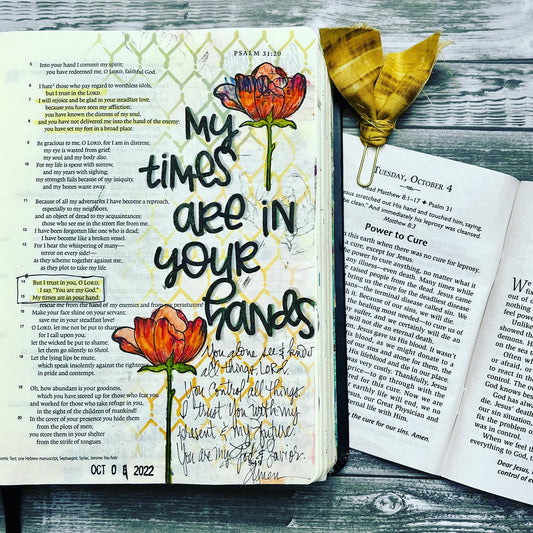 PSALM 31:20
5 Into your hand I commit my spirit;
you have redeemed me, O LORD, faithful God.
6 I hate those who pay regard to worthless idols,
but I trust in the LORD.
7 I will rejoice and be glad in your steadfast love,
because you have seen my affliction;
you have known the distress of my soul,
8 and you have not delivered me into the hand of the enemy;
you have set my feet in a broad place.
9 Be gracious to me, O LORD, for I am in distress;
my eye is wasted from grief;
my soul and my body also.
10 For my life is spent with sorrow,
and my years with sighing;
my strength fails because of my iniquity,
and my bones waste away.
11 Because of all my adversaries I have become a reproach,
especially to my neighbors,
and an object of dread to my acquaintances;
those who see me in the street flee from me.
12 I have been forgotten like one who is dead;
I have become like a broken vessel.
13 For I hear the whispering of many—
terror on every side!—
as they scheme together against me,
as they plot to take my life.
14 But I trust in you, O LORD;
I say, "You are my God."
15 My times are in your hand;
rescue me from the hand of my enemies and from my persecutors!
16 Make your face shine on your servant;
save me in your steadfast love!
17 O LORD, let me not be put to shame,
for I call upon you;
let the wicked be put to shame;
let them go silently to Sheol.
18 Let the lying lips be mute,
which speak insolently against the righteous
in pride and contempt.
19 Oh, how abundant is your goodness,
which you have stored up for those who fear you
and worked for those who take refuge in you,
in the sight of the children of mankind!
20 In the cover of your presence you hide them
from the plots of men;
you store them in your shelter
from the strife of tongues.
Text; one Hebrew manuscript, Septuagint, Syriac, Jerome You hate
OCT 2022
My
times
are in
your
hands
You alone see & know
all things, LORD.
You control all things.
I trust You with my
present & my future.
You are my God & Savior.
Amen
TUESDAY, OCTOBER 4
Read Matthew 8:1–17 ✦ Psalm 31
Jesus stretched out His hand and touched him, saying,
be clean." And immediately his leprosy was cleansed.
Matthew 8:3
Power to Cure
this earth when there was no cure for leprosy:
a cure, except for Jesus.
the power to cure anything, no matter what it
Many times
raised people from the dead. Jesus came
bring us the cure for the deadliest disease
terminal disease we all are
Because of our sins, we will die.
healing most needed—to cure us of
suffer, and we certainly will die an
will not die an eternal death.
Jesus gave us, as we might donate to
blood. He donated it on the cross.
of our sins and atone for them, the
His lifeblood and die in our place.
was very costly. Thankfully, Jesus
price—to go through with the
for this cure. Now we
earthly life will end, we no
Jesus, our Great Physician and
eternal life with Him.
the cure for our sins. Amen.
When we feel th
everything to God, wh
Dear Jesus,
control of e